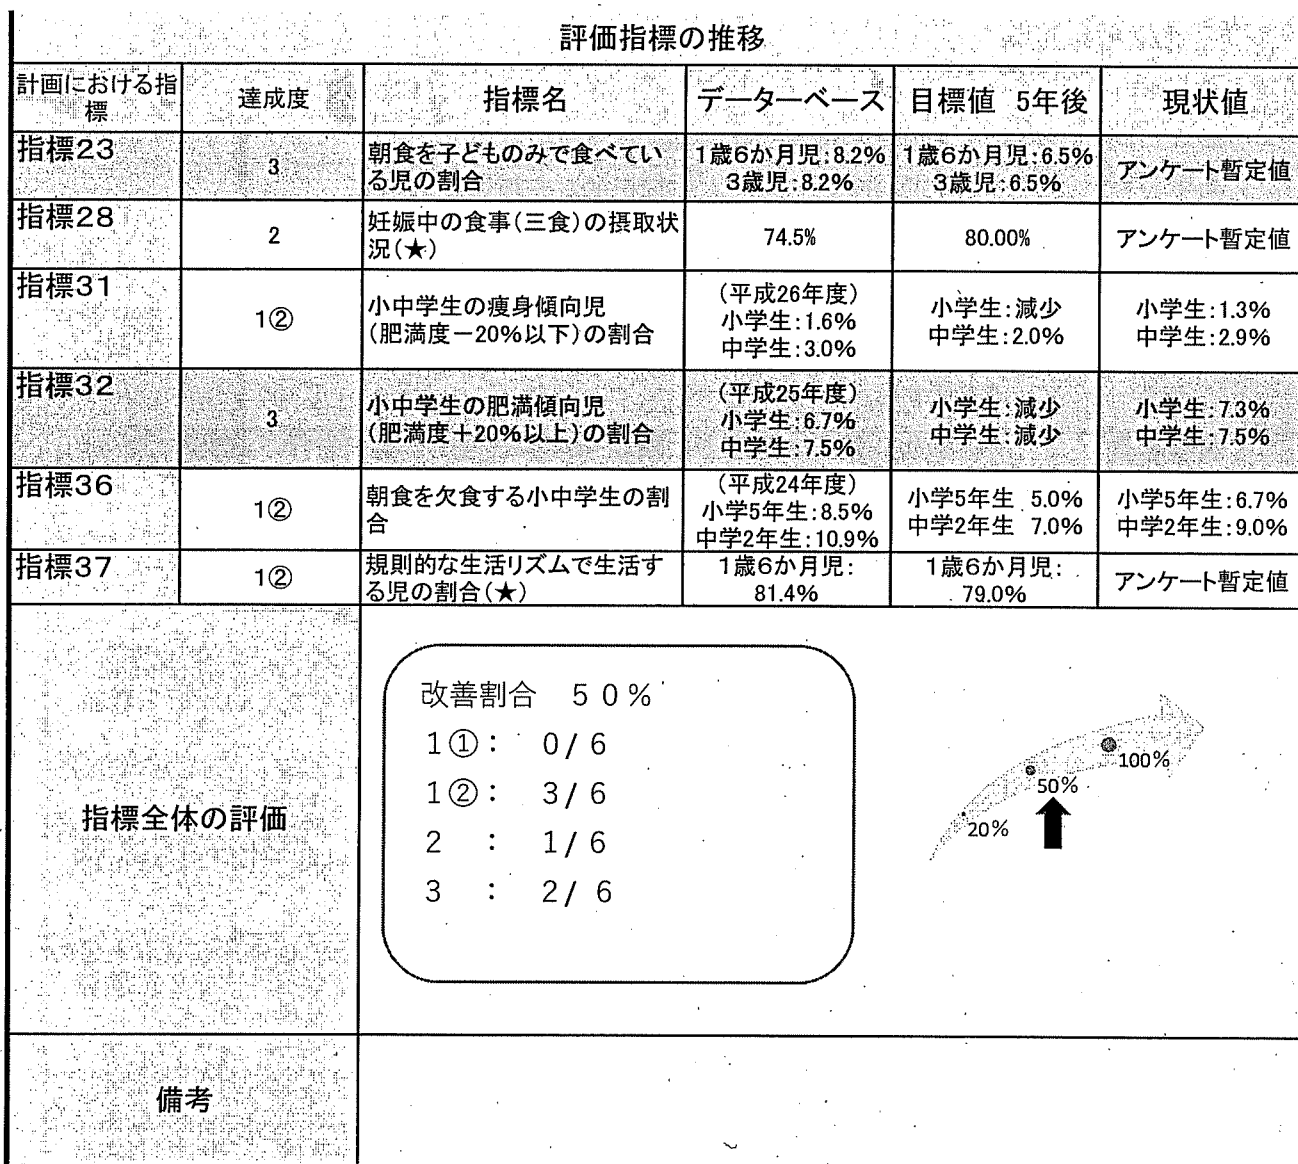 評価指標の推移
計画における指標 達成度 指標名 データーベース 目標値 5年後 現状値
指標23
3
朝食を子どものみで食べてい
る児の割合
1歳6か月児:8.2%
3歳児:8.2%
1歳6か月児:6.5%
3歳児:6.5%
アンケート暫定値
指標28
2
妊娠中の食事(三食)の摂取状
況(★)
74.5%
80.00%
アンケート暫定値
指標31
1②
小中学生の痩身傾向児
(肥満度－20%以下)の割合
(平成26年度)
小学生:1.6%
中学生:3.0%
小学生:減少
中学生:2.0%
小学生:1.3%
中学生:2.9%
指標32
3
小中学生の肥満傾向児
(肥満度＋20%以上)の割合
(平成25年度)
小学生:6.7%
中学生:7.5%
小学生:減少
中学生:減少
小学生:7.3%
中学生:7.5%
指標36
1②
朝食を欠食する小中学生の割
合
(平成24年度)
小学5年生:8.5%
中学2年生:10.9%
小学5年生 5.0%
中学2年生 7.0%
小学5年生:6.7%
中学2年生:9.0%
指標37
1②
規則的な生活リズムで生活す
る児の割合(★)
1歳6か月児:
81.4%
1歳6か月児:
79.0%
アンケート暫定値
指標全体の評価
改善割合 50%
1①: 0/6
1②: 3/6
2 : 1/6
3 : 2/6
20%
50%
100%
備考